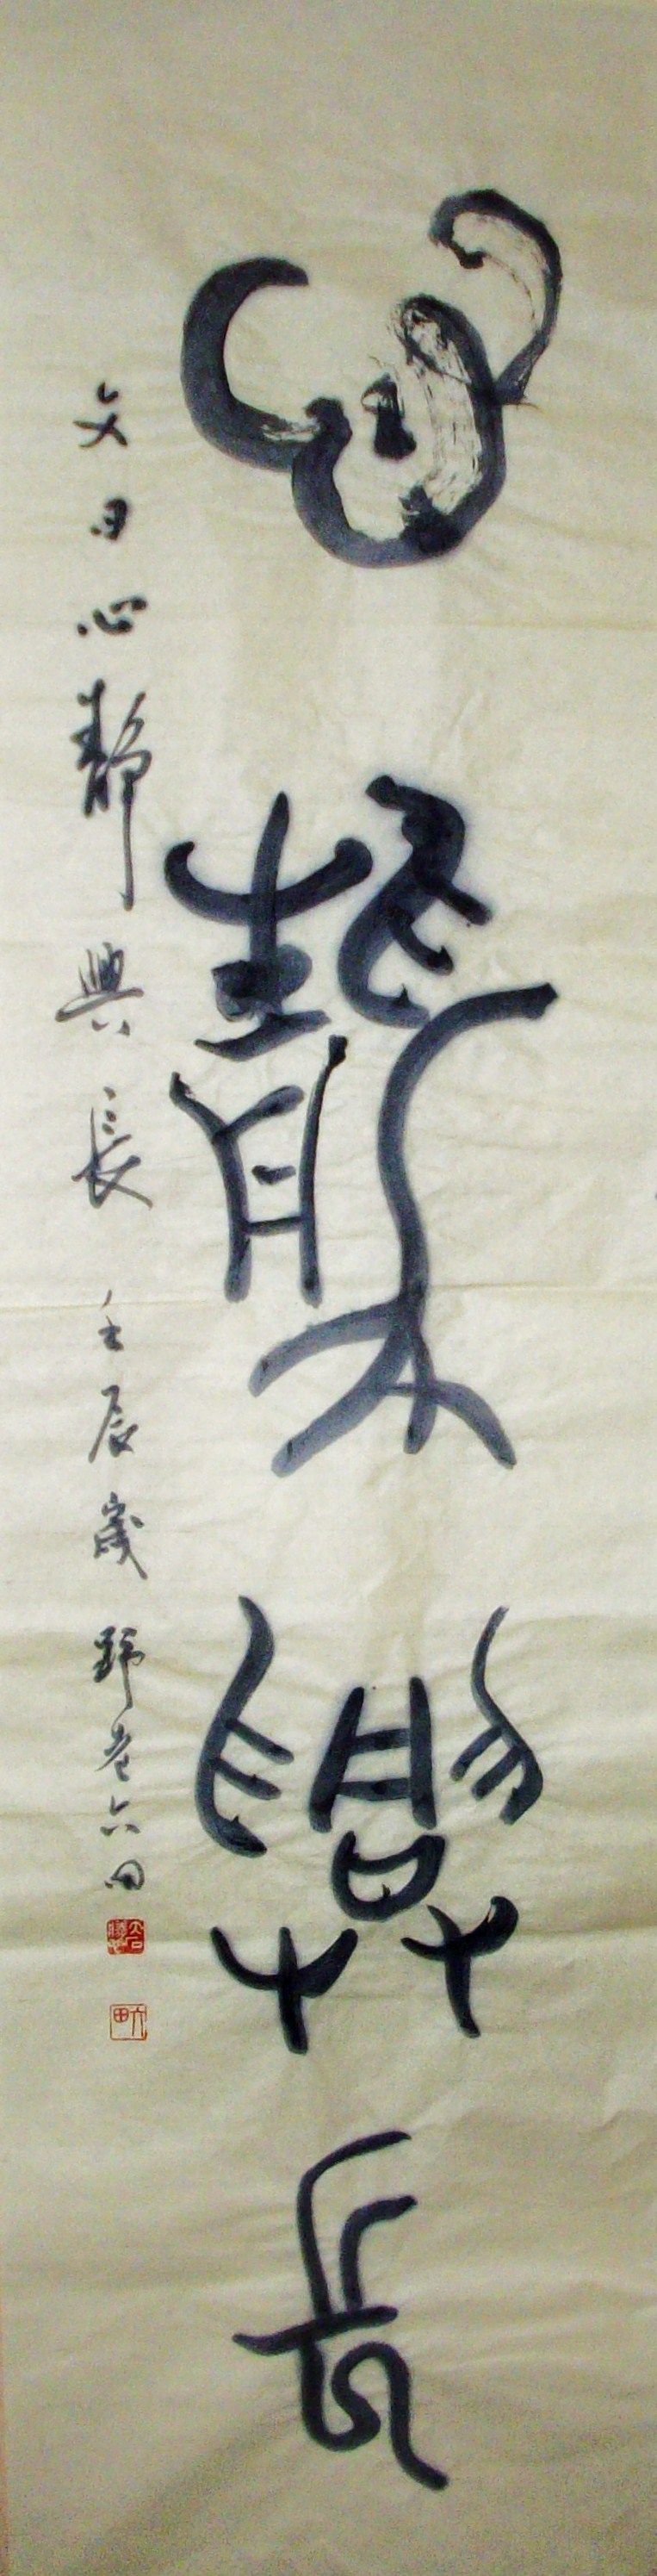 心靜興長
文曰心靜興長 壬辰歲 野老六田
六田